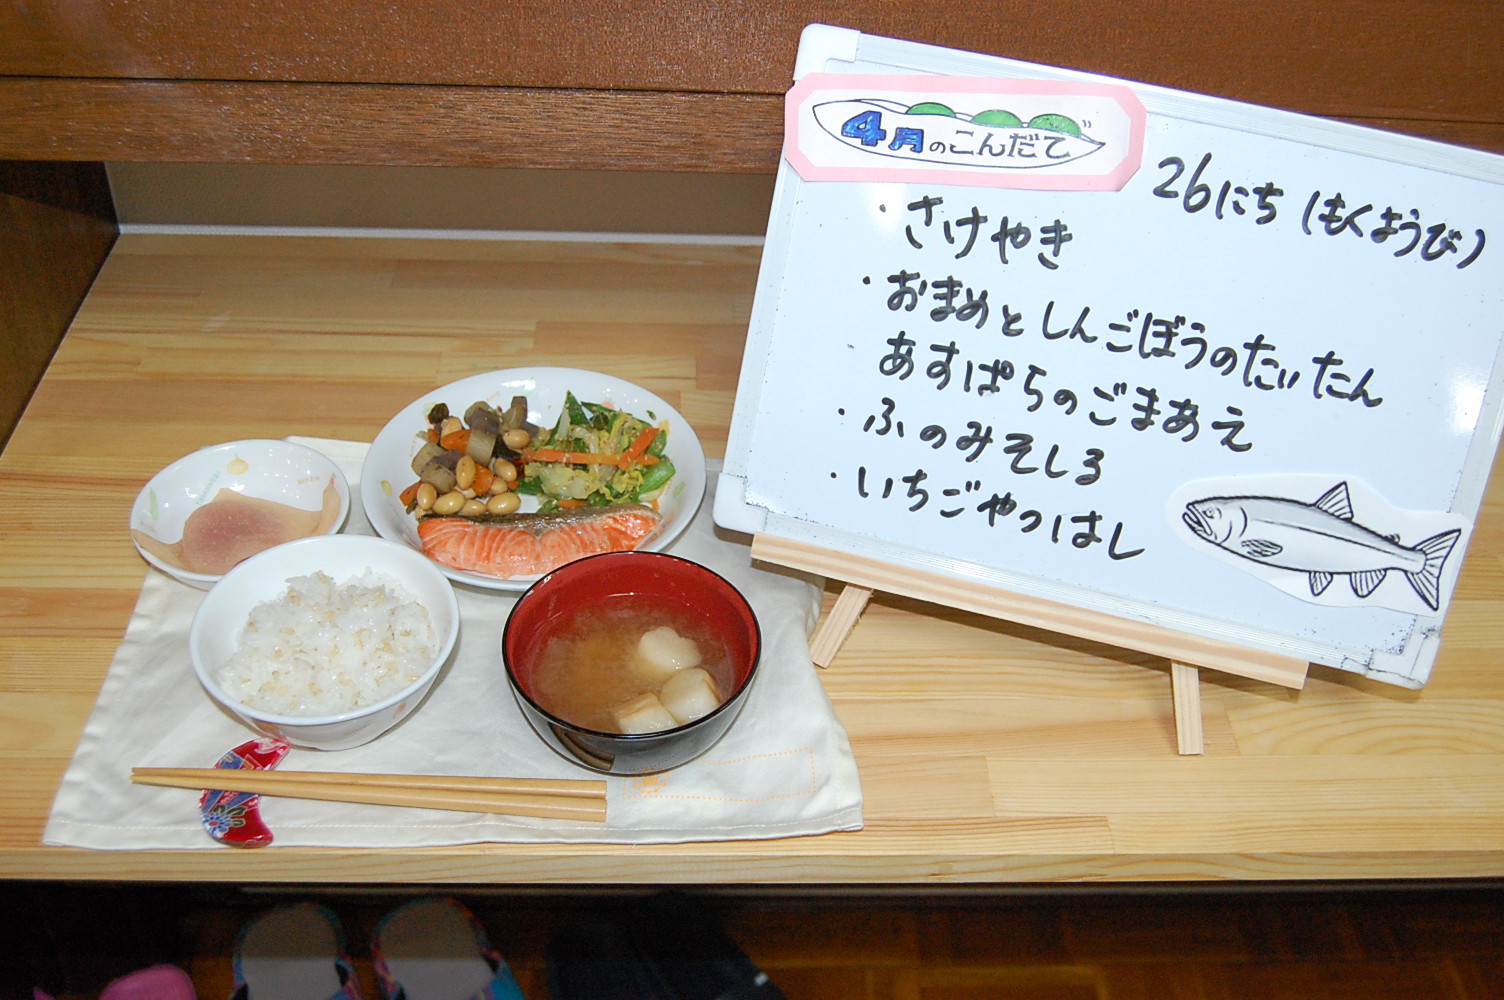 4月のこんだて
26にち(もくようび)
・さけやき
・おまめとしんごぼうのたいたん
あすぱらのごまあえ
・ふのみそしる
・いちごやつはし